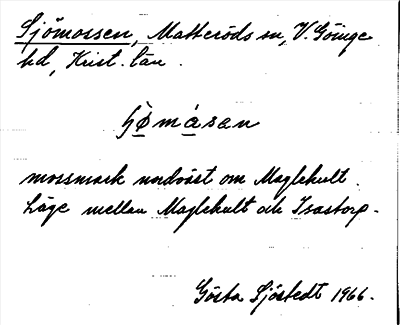 Sjömossen, Matteröds sn, V. Göinge
hd, Krist. län.
mossmark nordväst om Maglekult.
Läge mellan Maglekult och Isastorp.
Gösta Sjöstedt 1966.